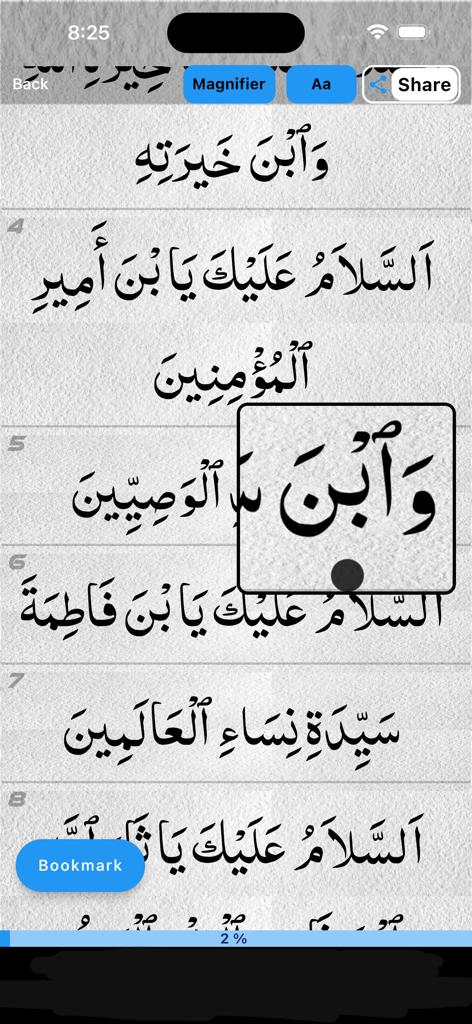 8:25
Back
Magnifier
Aa
Share
وَٱبْنَ خَيرَتِهِ
4
اَلسَّلاَمُ عَلَيْكَ يَا بْنَ أَمِيرِ
ٱلْمُؤْمِنِينَ
5
وَٱبْنَ سَيِّدِ ٱلْوَصِيِّينَ
6
اَلسَّلاَمُ عَلَيْكَ يَا بْنَ فَاطِمَةَ
7
سَيِّدَةِ نِسَاءِ ٱلْعَالَمِينَ
8
اَلسَّلاَمُ عَلَيْكَ يَا
Bookmark
2 %